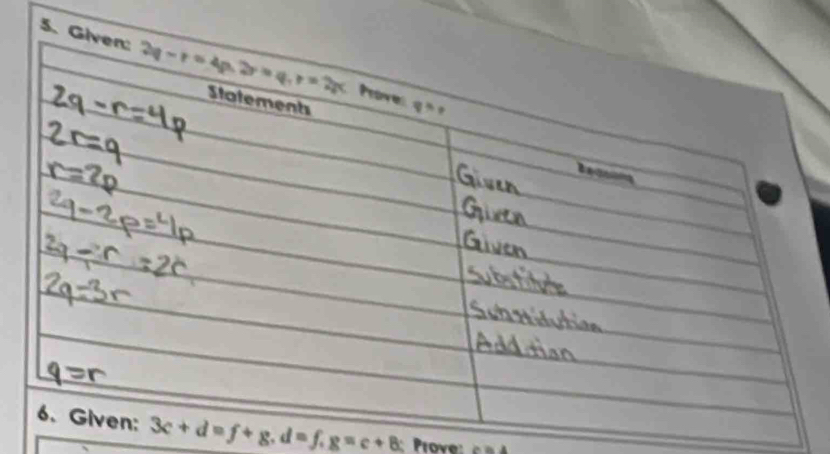 5. Given: 2q - r = 4p, 2r = q, r = 2p; Prove: q = r
Statements Reasons
2q-r=4p Given
2r=q Given
r=2p Given
2q-2p=4p Substitute
2q-r=2r Substitution
2q=3r Addition
q=r
6. Given: 3c + d = f + g, d = f, g = c + 8; Prove: